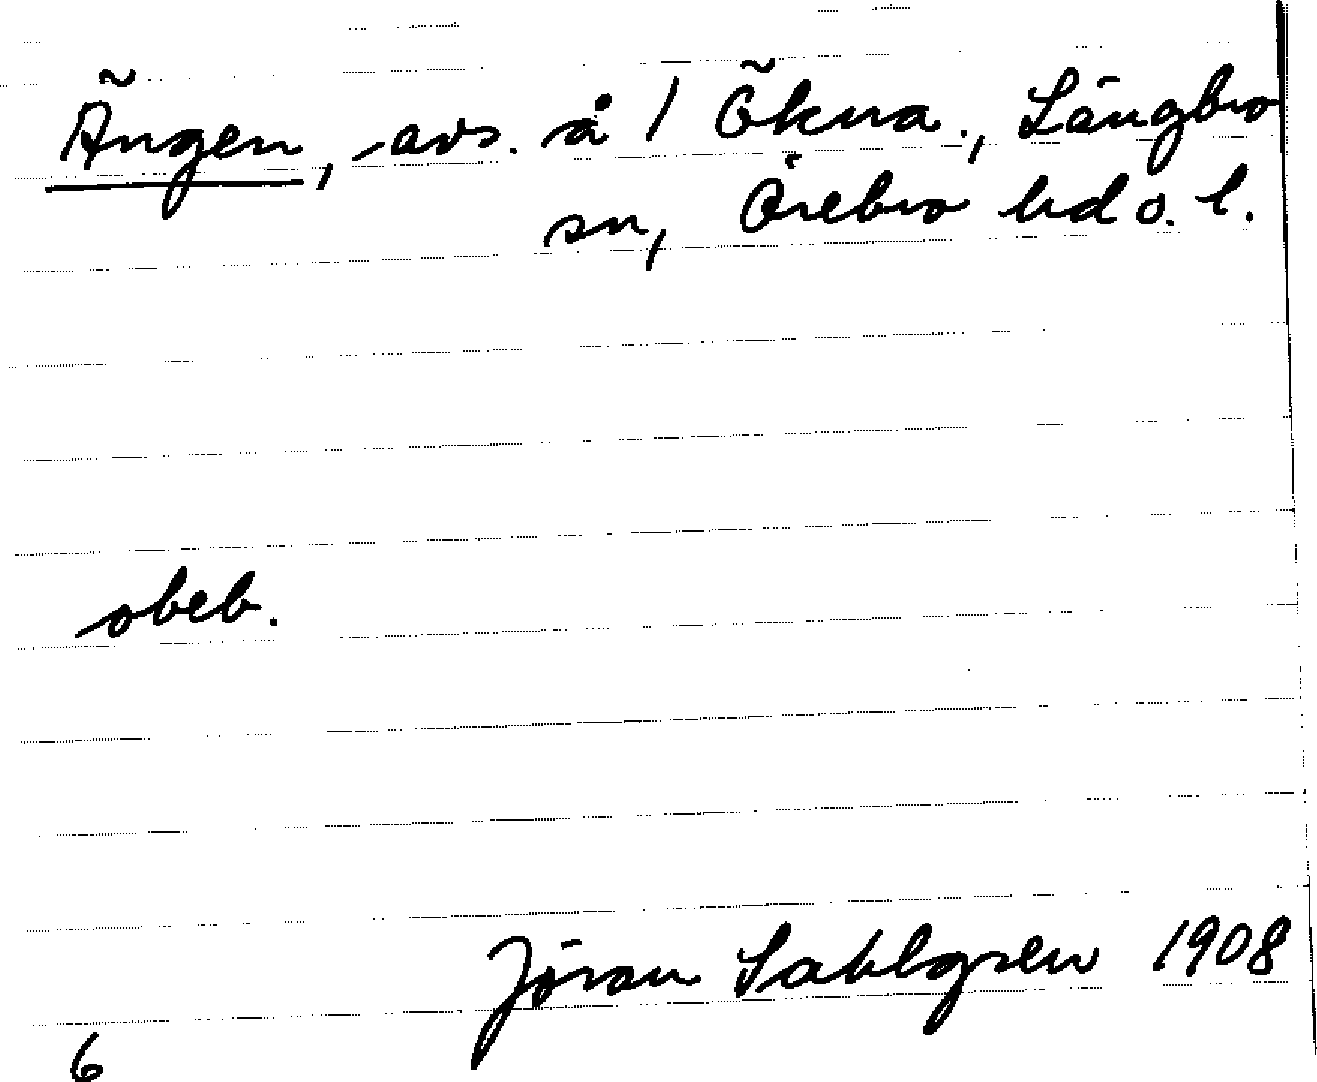 Ängen, avs. å 1 Ökna., Längbro
sn, Örebro hd o. l.
obeb.
Jöran Sahlgren 1908
6